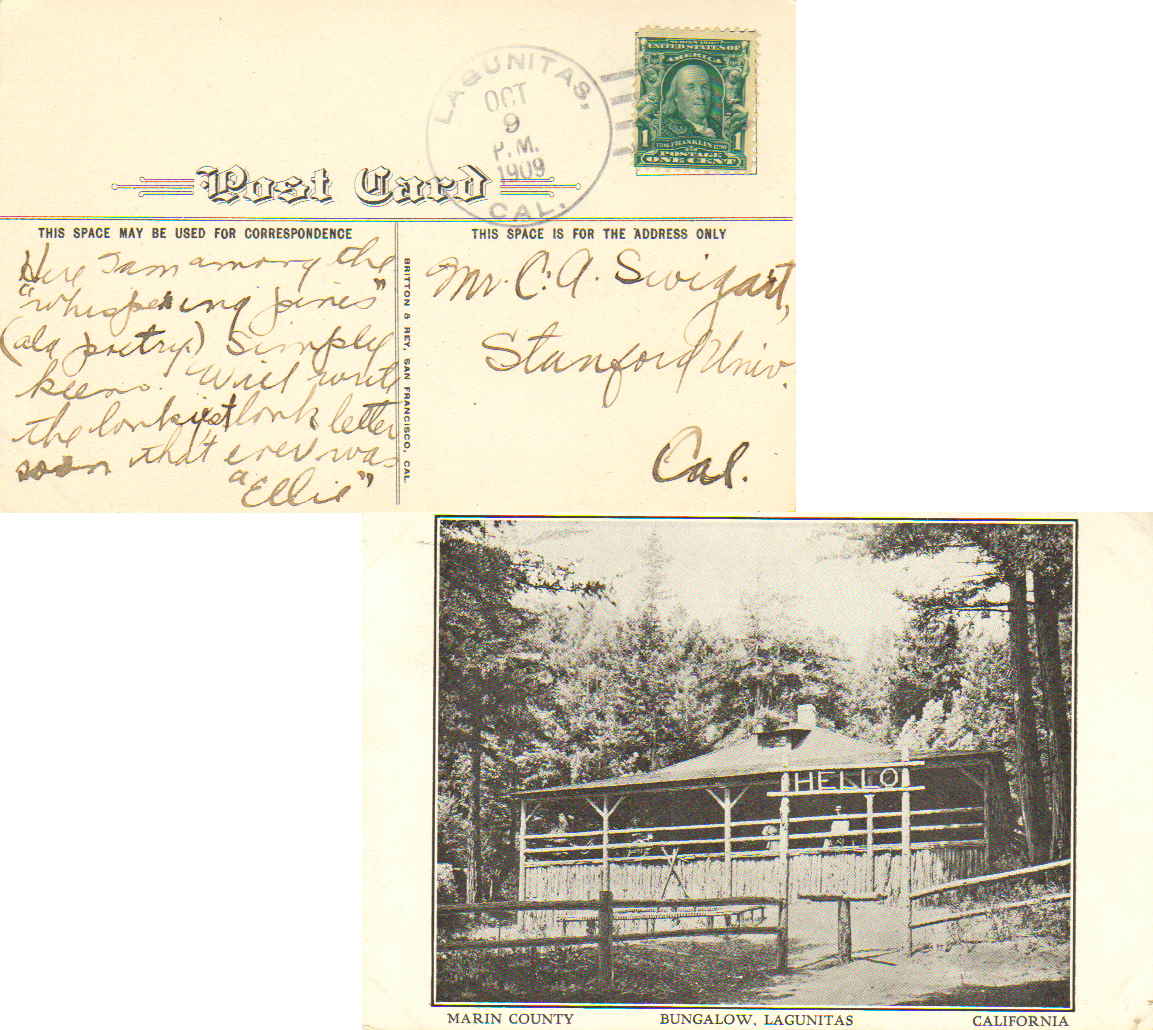 LAGUNITAS,
OCT
9
P.M.
1909
CAL.
UNITED STATES OF
AMERICA
1 1
FRANKLIN
POSTAGE
ONE CENT
Post Card
THIS SPACE MAY BE USED FOR CORRESPONDENCE
Here I am among the
"whispering pines"
(ala poetry.) Simply
keeno. Will write
the lonkest lonk letter
soon that ever was
"Ellie"
BRITTON & REY, SAN FRANCISCO, CAL.
THIS SPACE IS FOR THE ADDRESS ONLY
Mr. C. A. Swigart,
Stanford Univ.
Cal.
HELLO
MARIN COUNTY BUNGALOW, LAGUNITAS CALIFORNIA